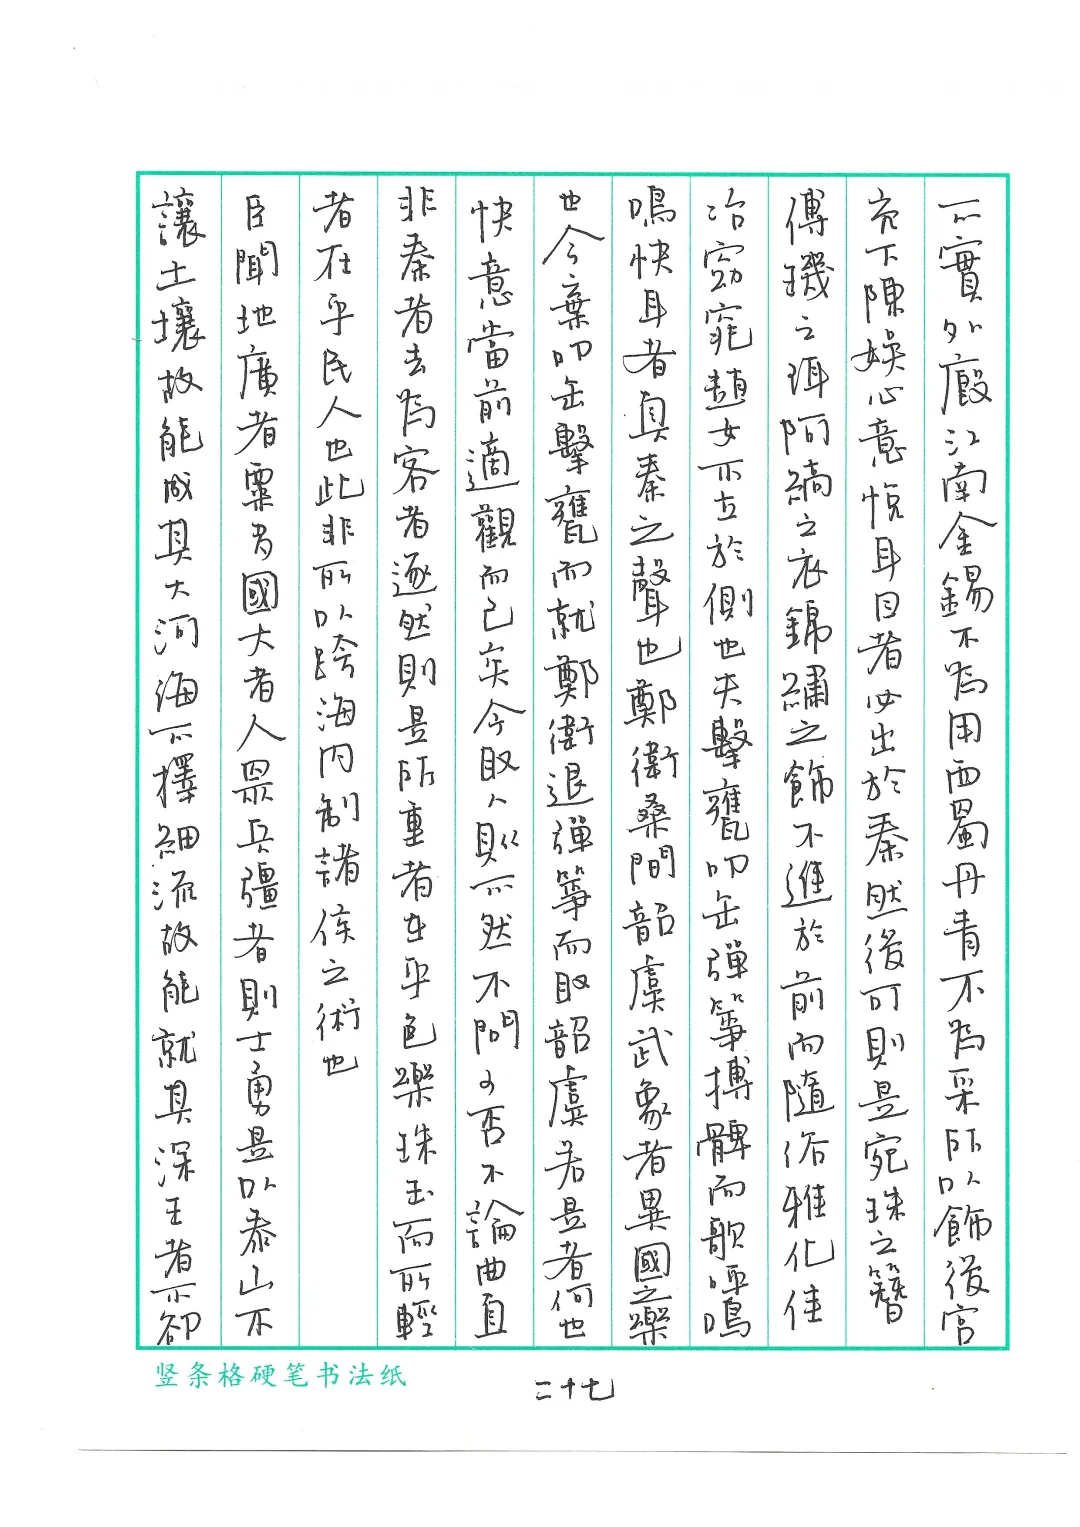 不實外廄江南金錫不為用西蜀丹青不為采所以飾後宮
充下陳娛心意悅耳目者必出於秦然後可則是宛珠之簪
傅璣之珥阿縞之衣錦繡之飾不進於前而隨俗雅化佳
冶窈窕趙女不立於側也夫擊甕叩缶彈箏搏髀而歌呼嗚
嗚快耳者真秦之聲也鄭衛桑間韶虞武象者異國之樂
也今棄叩缶擊甕而就鄭衛退彈箏而取韶虞若是者何也
快意當前適觀而已矣今取人則不然不問可否不論曲直
非秦者去為客者逐然則是所重者在乎色樂珠玉而所輕
者在乎民人也此非所以跨海內制諸侯之術也
臣聞地廣者粟多國大者人眾兵彊者則士勇是以泰山不
讓土壤故能成其大河海不擇細流故能就其深王者不卻
竖条格硬笔书法纸
二十七